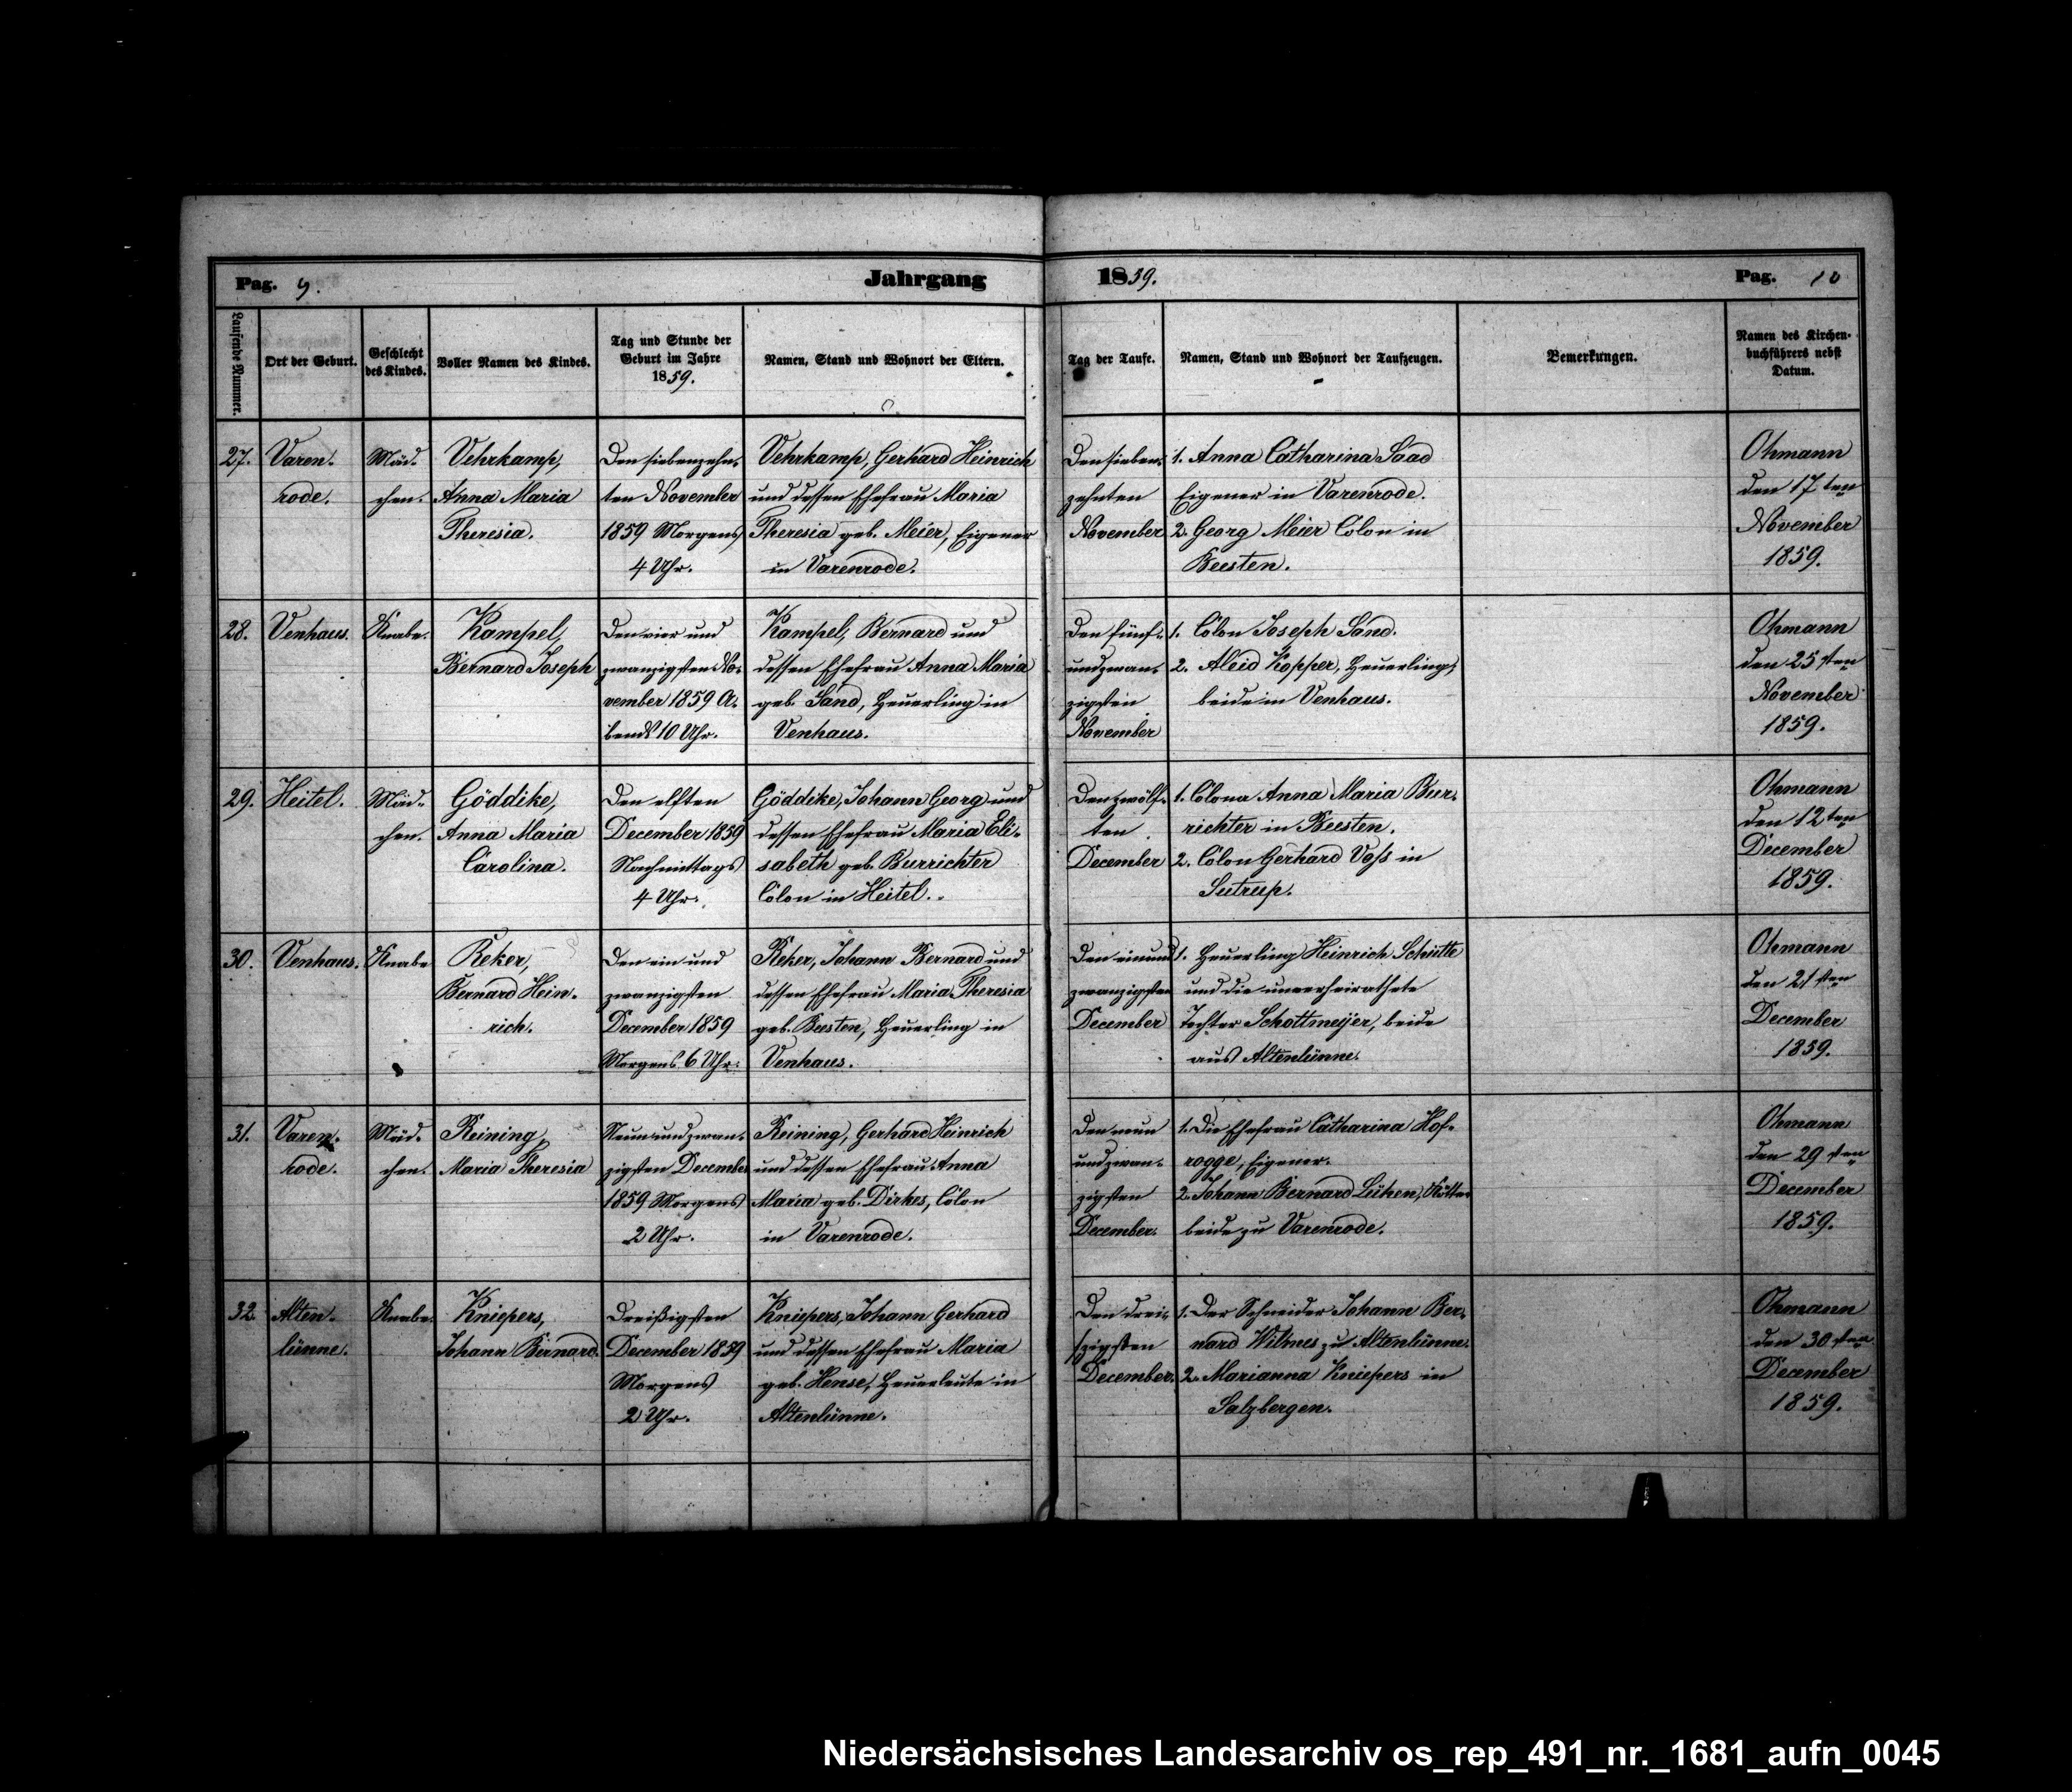 Pag. 9. Jahrgang 1859. Pag. 10
Laufende Nummer.
Ort der Geburt.
Geschlecht
des Kindes.
Voller Namen des Kindes.
Tag und Stunde der
Geburt im Jahre
1859.
Namen, Stand und Wohnort der Eltern.
Tag der Taufe.
Namen, Stand und Wohnort der Taufzeugen.
Bemerkungen.
Namen des Kirchen-
buchführers nebst
Datum.
27.
Varen-
rode.
Mäd-
chen.
Vehrkamp,
Anna Maria
Theresia.
Den siebenzehn-
ten November
1859 Morgens
4 Uhr.
Vehrkamp, Gerhard Heinrich
und dessen Ehefrau Maria
Theresia geb. Meier, Eigener
in Varenrode.
Den sieben-
zehnten
November
1. Anna Catharina Saad
Eigener in Varenrode.
2. Georg Meier Colon in
Beesten.
Ohmann
den 17ten
November
1859.
28.
Venhaus.
Knabe.
Kampel,
Bernard Joseph
Den vier und
zwanzigsten No-
vember 1859 A-
bends 10 Uhr.
Kampel, Bernard und
dessen Ehefrau Anna Maria
geb. Sand, Heuerling in
Venhaus.
Den fünf-
undzwan-
zigsten
November
1. Colon Joseph Sand.
2. Aleid Kopper, Heuerling,
beide in Venhaus.
Ohmann
den 25sten
November
1859.
29.
Heitel.
Mäd-
chen.
Göddike,
Anna Maria
Carolina.
Den elften
December 1859
Nachmittags
4 Uhr.
Göddike, Johann Georg und
dessen Ehefrau Maria Eli-
sabeth geb. Burrichter
Colon in Heitel.
Den zwölf-
ten
December
1. Colona Anna Maria Bur-
richter in Beesten.
2. Colon Gerhard Voss in
Sutrup.
Ohmann
den 12ten
December
1859.
30.
Venhaus.
Knabe
Reker,
Bernard Hein-
rich.
Den ein und
zwanzigsten
December 1859
Morgens 6 Uhr.
Reker, Johann Bernard und
dessen Ehefrau Maria Theresia
geb. Beesten, Heuerling in
Venhaus.
Den einund
zwanzigsten
December
1. Heuerling Heinrich Schütte
und die unverheirathete
Tochter Schottmeyer, beide
aus Altenlünne.
Ohmann
den 21sten
December
1859.
31.
Varen-
rode.
Mäd-
chen.
Reining,
Maria Theresia
Neunundzwan-
zigsten December
1859 Morgens
2 Uhr.
Reining, Gerhard Heinrich
und dessen Ehefrau Anna
Maria geb. Dirkes, Colon
in Varenrode.
Den neun
undzwan-
zigsten
December.
1. Die Ehefrau Catharina Hof-
rogge, Eigener.
2. Johann Bernard Lühen, Kötter
beide zu Varenrode.
Ohmann
den 29sten
December
1859.
32.
Alten-
lünne.
Knabe.
Kniepers,
Johann Bernard.
Dreißigsten
December 1859
Morgens
2 Uhr.
Kniepers, Johann Gerhard
und dessen Ehefrau Maria
geb. Hense, Heuerleute in
Altenlünne.
Den drei-
szigsten
December.
1. Der Schneider Johann Ber-
nard Wilmes zu Altenlünne.
2. Marianna Kniepers in
Salzbergen.
Ohmann
den 30sten
December
1859.
Niedersächsisches Landesarchiv os_rep_491_nr._1681_aufn_0045